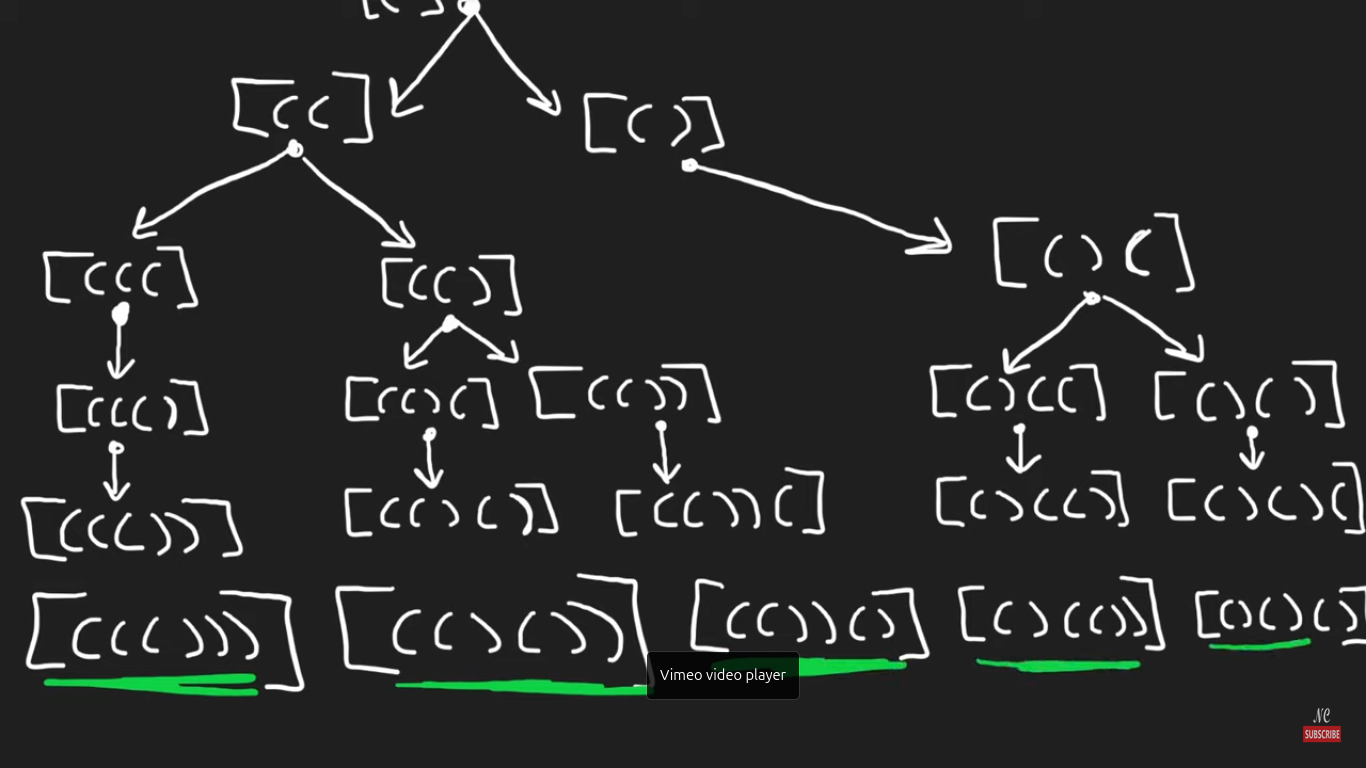 [(]
[((] [()]
[(((] [(()] [()(]
[((()] [(()(] [(())] [()((] [()()]
[((())] [(()()] [(())(] [()(()] [()()(]
[((()))] [(()())] [(())()] [()(())] [()()()]
Vimeo video player
NC
SUBSCRIBE